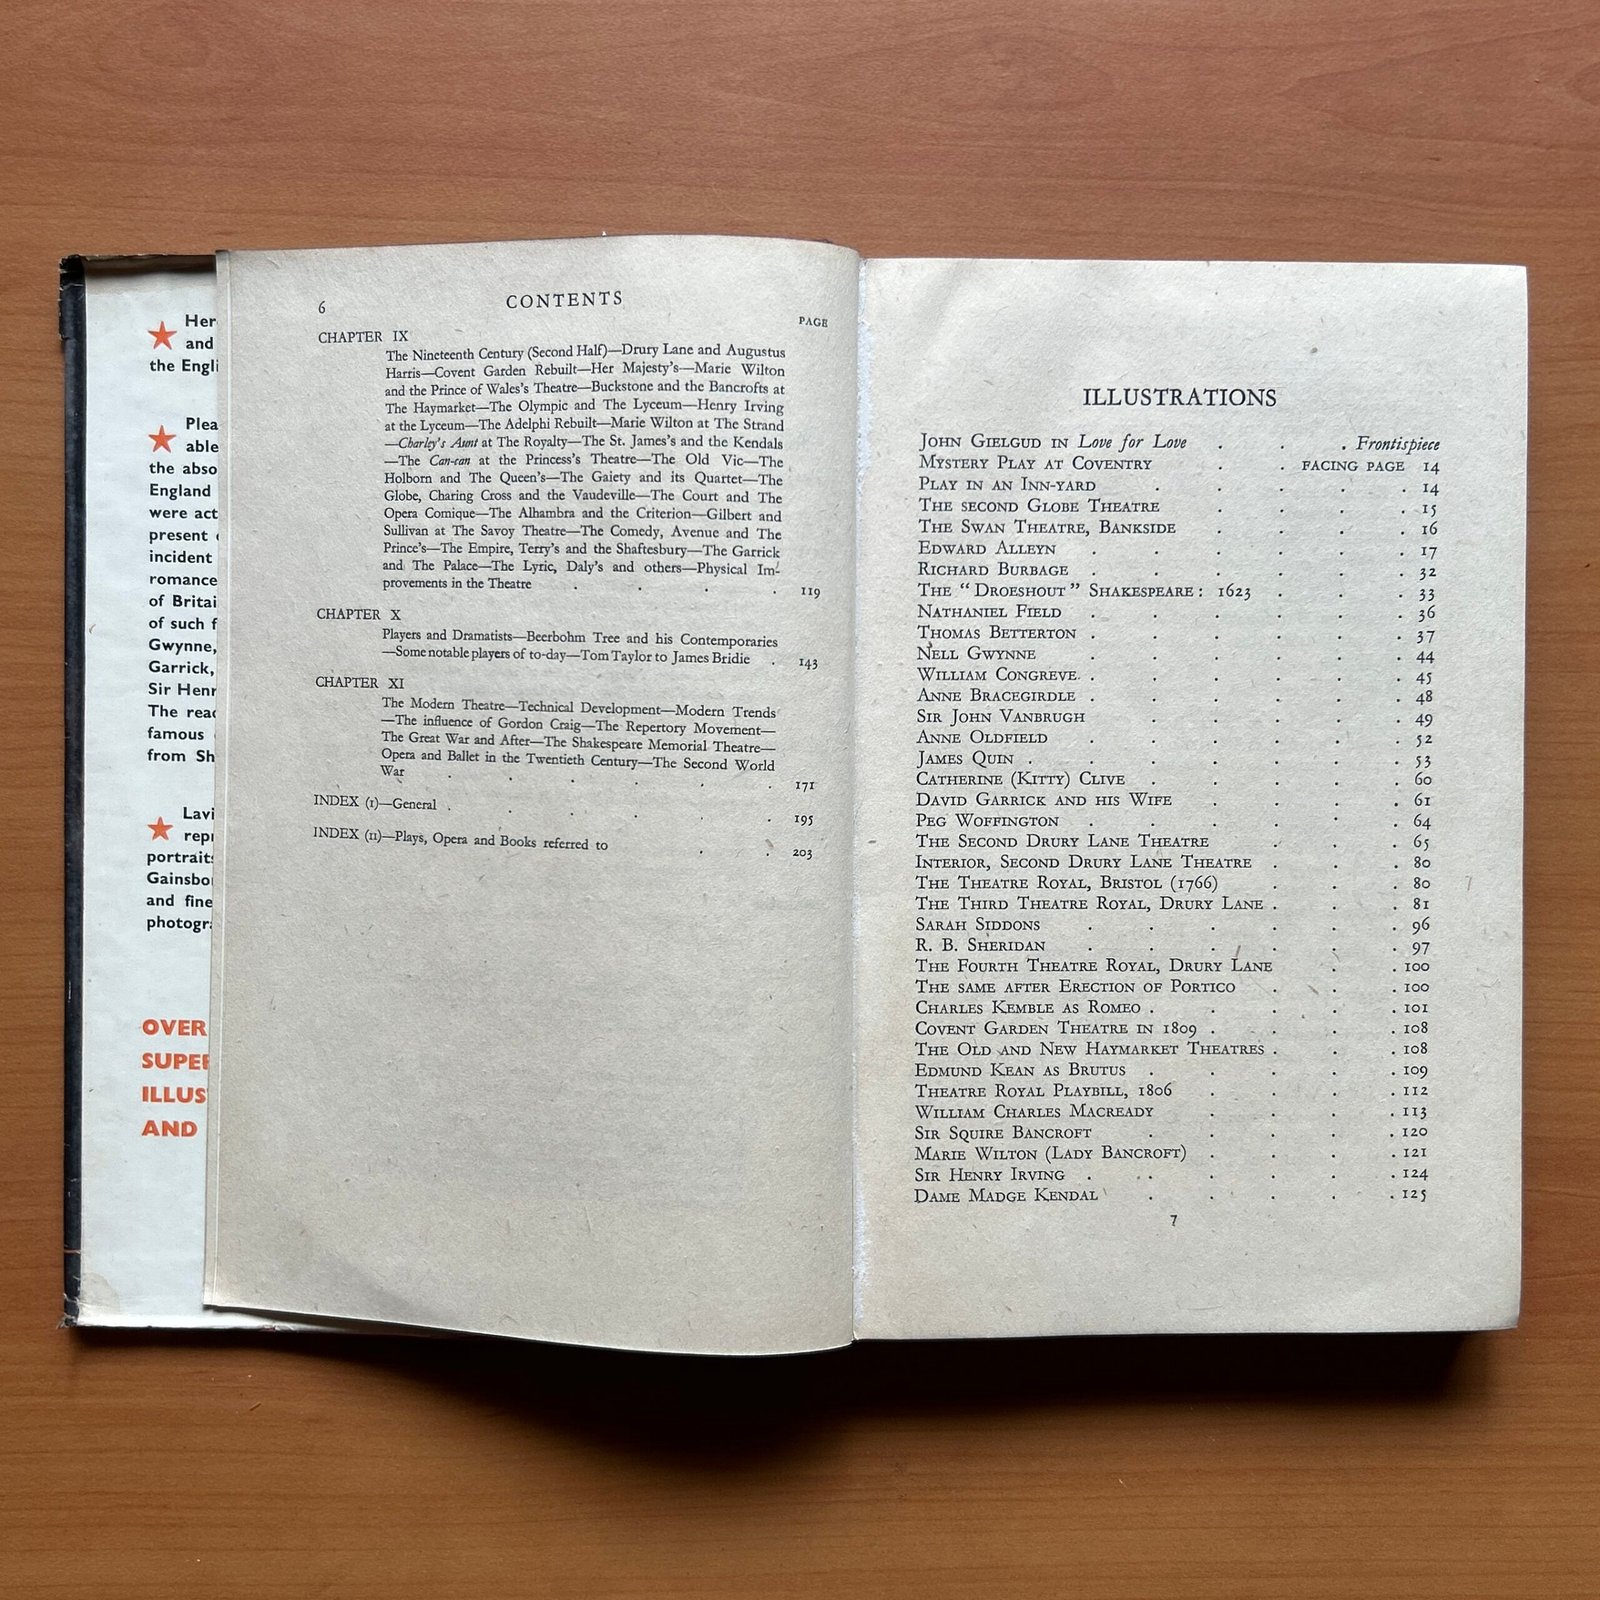 Her
and
the Engli
Plea
able
the abso
England
were act
present
incident
romance
of Britai
of such f
Gwynne,
Garrick,
Sir Henr
The read
famous
from Sh
Lavi
repr
portraits
Gainsbo
and fine
photogra
OVER
SUPER
ILLUS
AND
6 CONTENTS
PAGE
CHAPTER IX
The Nineteenth Century (Second Half)—Drury Lane and Augustus
Harris—Covent Garden Rebuilt—Her Majesty's—Marie Wilton
and the Prince of Wales's Theatre—Buckstone and the Bancrofts at
The Haymarket—The Olympic and The Lyceum—Henry Irving
at the Lyceum—The Adelphi Rebuilt—Marie Wilton at The Strand
—Charley's Aunt at The Royalty—The St. James's and the Kendals
—The Can-can at the Princess's Theatre—The Old Vic—The
Holborn and The Queen's—The Gaiety and its Quartet—The
Globe, Charing Cross and the Vaudeville—The Court and The
Opera Comique—The Alhambra and the Criterion—Gilbert and
Sullivan at The Savoy Theatre—The Comedy, Avenue and The
Prince's—The Empire, Terry's and the Shaftesbury—The Garrick
and The Palace—The Lyric, Daly's and others—Physical Im-
provements in the Theatre . . . . 119
CHAPTER X
Players and Dramatists—Beerbohm Tree and his Contemporaries
—Some notable players of to-day—Tom Taylor to James Bridie . 143
CHAPTER XI
The Modern Theatre—Technical Development—Modern Trends
—The influence of Gordon Craig—The Repertory Movement—
The Great War and After—The Shakespeare Memorial Theatre—
Opera and Ballet in the Twentieth Century—The Second World
War . . . . . . 171
INDEX (I)—General . . . . . . 195
INDEX (II)—Plays, Opera and Books referred to . . 203
ILLUSTRATIONS
JOHN GIELGUD IN Love for Love . . . Frontispiece
MYSTERY PLAY AT COVENTRY . . FACING PAGE 14
PLAY IN AN INN-YARD . . . . . 14
THE SECOND GLOBE THEATRE . . . . 15
THE SWAN THEATRE, BANKSIDE . . . . 16
EDWARD ALLEYN . . . . . . 17
RICHARD BURBAGE . . . . . . 32
THE "DROESHOUT" SHAKESPEARE: 1623 . . . 33
NATHANIEL FIELD . . . . . . 36
THOMAS BETTERTON . . . . . . 37
NELL GWYNNE . . . . . . 44
WILLIAM CONGREVE . . . . . . 45
ANNE BRACEGIRDLE . . . . . . 48
SIR JOHN VANBRUGH . . . . . 49
ANNE OLDFIELD . . . . . . 52
JAMES QUIN . . . . . . . 53
CATHERINE (KITTY) CLIVE . . . . . 60
DAVID GARRICK AND HIS WIFE . . . . 61
PEG WOFFINGTON . . . . . . 64
THE SECOND DRURY LANE THEATRE . . . 65
INTERIOR, SECOND DRURY LANE THEATRE . . . 80
THE THEATRE ROYAL, BRISTOL (1766) . . . 80
THE THIRD THEATRE ROYAL, DRURY LANE . . . 81
SARAH SIDDONS . . . . . . 96
R. B. SHERIDAN . . . . . . 97
THE FOURTH THEATRE ROYAL, DRURY LANE . . 100
THE SAME AFTER ERECTION OF PORTICO . . . 100
CHARLES KEMBLE AS ROMEO . . . . . 101
COVENT GARDEN THEATRE IN 1809 . . . . 108
THE OLD AND NEW HAYMARKET THEATRES . . . 108
EDMUND KEAN AS BRUTUS . . . . . 109
THEATRE ROYAL PLAYBILL, 1806 . . . . 112
WILLIAM CHARLES MACREADY . . . . 113
SIR SQUIRE BANCROFT . . . . . 120
MARIE WILTON (LADY BANCROFT) . . . . 121
SIR HENRY IRVING . . . . . . 124
DAME MADGE KENDAL . . . . . 125
7